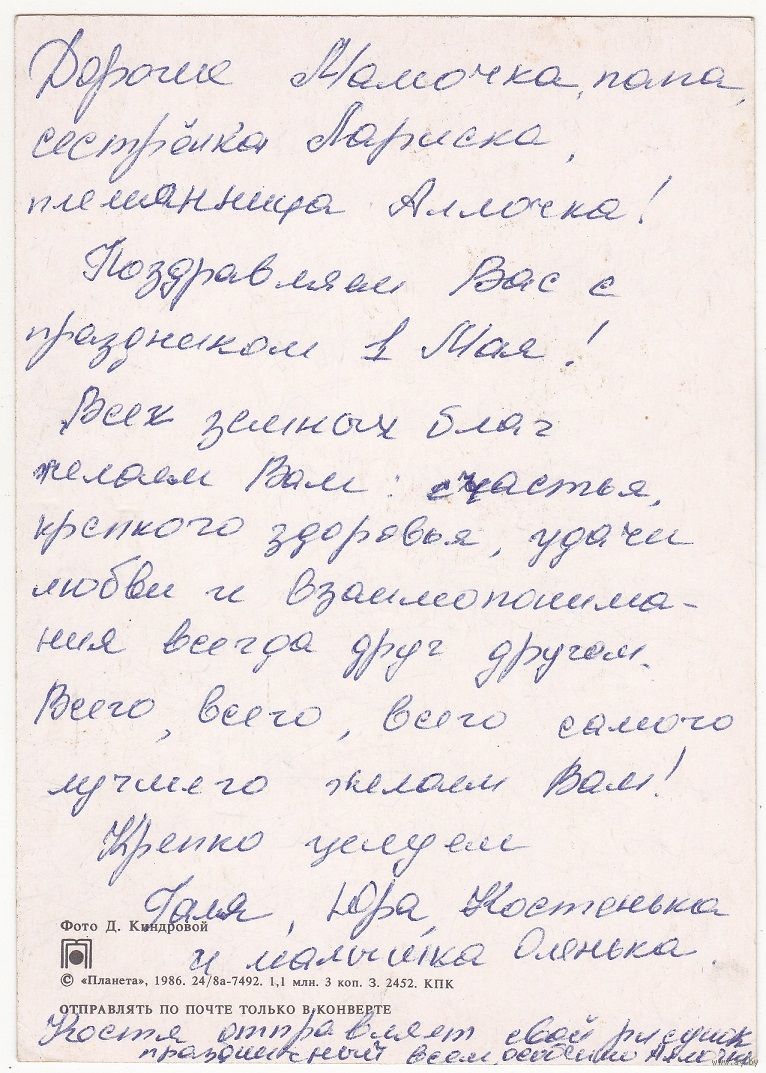 Дорогие Мамочка, папа,
сестрёнка Лариска,
племянница Аллочка!
Поздравляем Вас с
праздником 1 Мая!
Всех земных благ
желаем Вам: счастья,
крепкого здоровья, удачи
любви и взаимопонима-
ния всегда друг другом.
Всего, всего, всего самого
лучшего желаем Вам!
Крепко целуем
Галя, Юра, Костенька
Фото Д. Киндровой
и малышка Оленька.
© «Планета», 1986. 24/8а-7492. 1,1 млн. 3 коп. З. 2452. КПК
ОТПРАВЛЯТЬ ПО ПОЧТЕ ТОЛЬКО В КОНВЕРТЕ
Костя отправляет свой рисунок
праздничный всем, особенно Аллочке